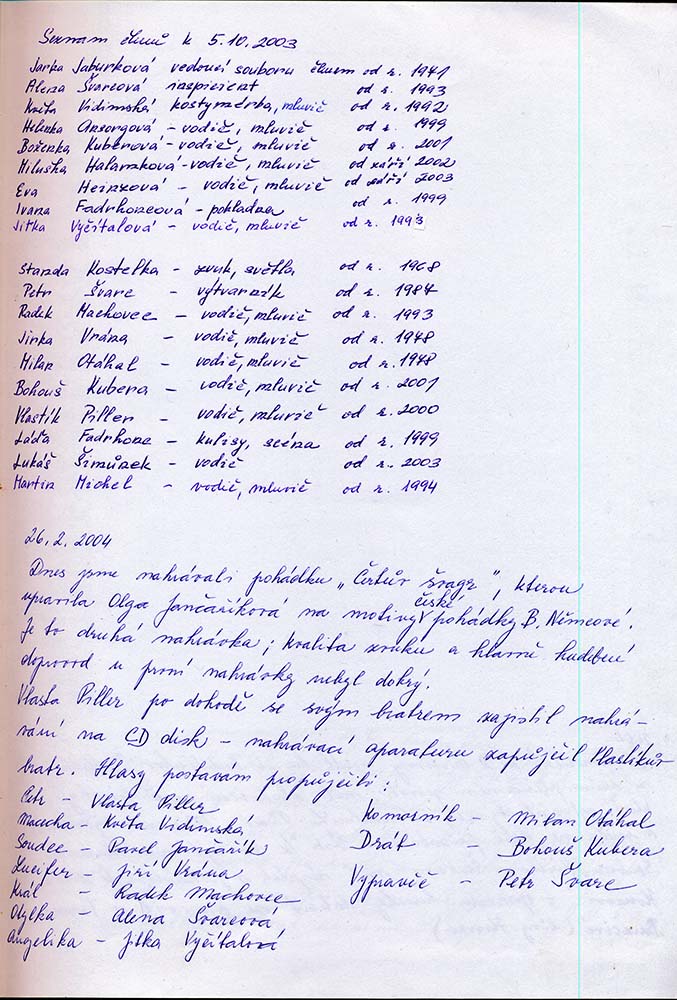 Seznam členů k 5.10.2003
Jarka Jaburková vedoucí souboru členem od r. 1941
Alena Švarcová inspicient od r. 1993
Květa Vidimská kostymérka, mluvič od r. 1992
Helenka Ansorgová – vodič, mluvič od r. 1999
Boženka Kuberová – vodič, mluvič od r. 2001
Miluška Halamková – vodič, mluvič od září 2002
Eva Heinzová – vodič, mluvič od září 2003
Ivana Fadrhoncová – pokladna od r. 1999
Jitka Vyčítalová – vodič, mluvič od r. 1993
Standa Kostelka – zvuk, světla od r. 1968
Petr Švarc – výtvarník od r. 1984
Radek Machovec – vodič, mluvič od r. 1993
Jirka Vrána – vodič, mluvič od r. 1948
Milan Otáhal – vodič, mluvič od r. 1948
Bohouš Kubera – vodič, mluvič od r. 2001
Vlastík Piller – vodič, mluvič od r. 2000
Láďa Fadrhonc – kulisy, scéna od r. 1999
Lukáš Šimůnek – vodič od r. 2003
Martin Michel – vodič, mluvič od r. 1994
26.2.2004
Dnes jsme nahrávali pohádku „Čertův švagr", kterou
upravila Olga Jančaříková na motivy české pohádky B. Němcové.
Je to druhá nahrávka; kvalita zvuku a hlavně hudební
doprovod u první nahrávky nebyl dobrý.
Vlasta Piller po dohodě se svým bratrem zajistil nahrá-
vání na CD disk – nahrávací aparaturu zapůjčil Vlastíkův
bratr. Hlasy postavám propůjčili:
Čert – Vlasta Piller
Macecha – Květa Vidimská
Soudce – Pavel Jančařík
Lucifer – Jiří Vrána
Král – Radek Machovec
Otylka – Alena Švarcová
Angelika – Jitka Vyčítalová
Komorník – Milan Otáhal
Dráb – Bohouš Kubera
Vypravěč – Petr Švarc